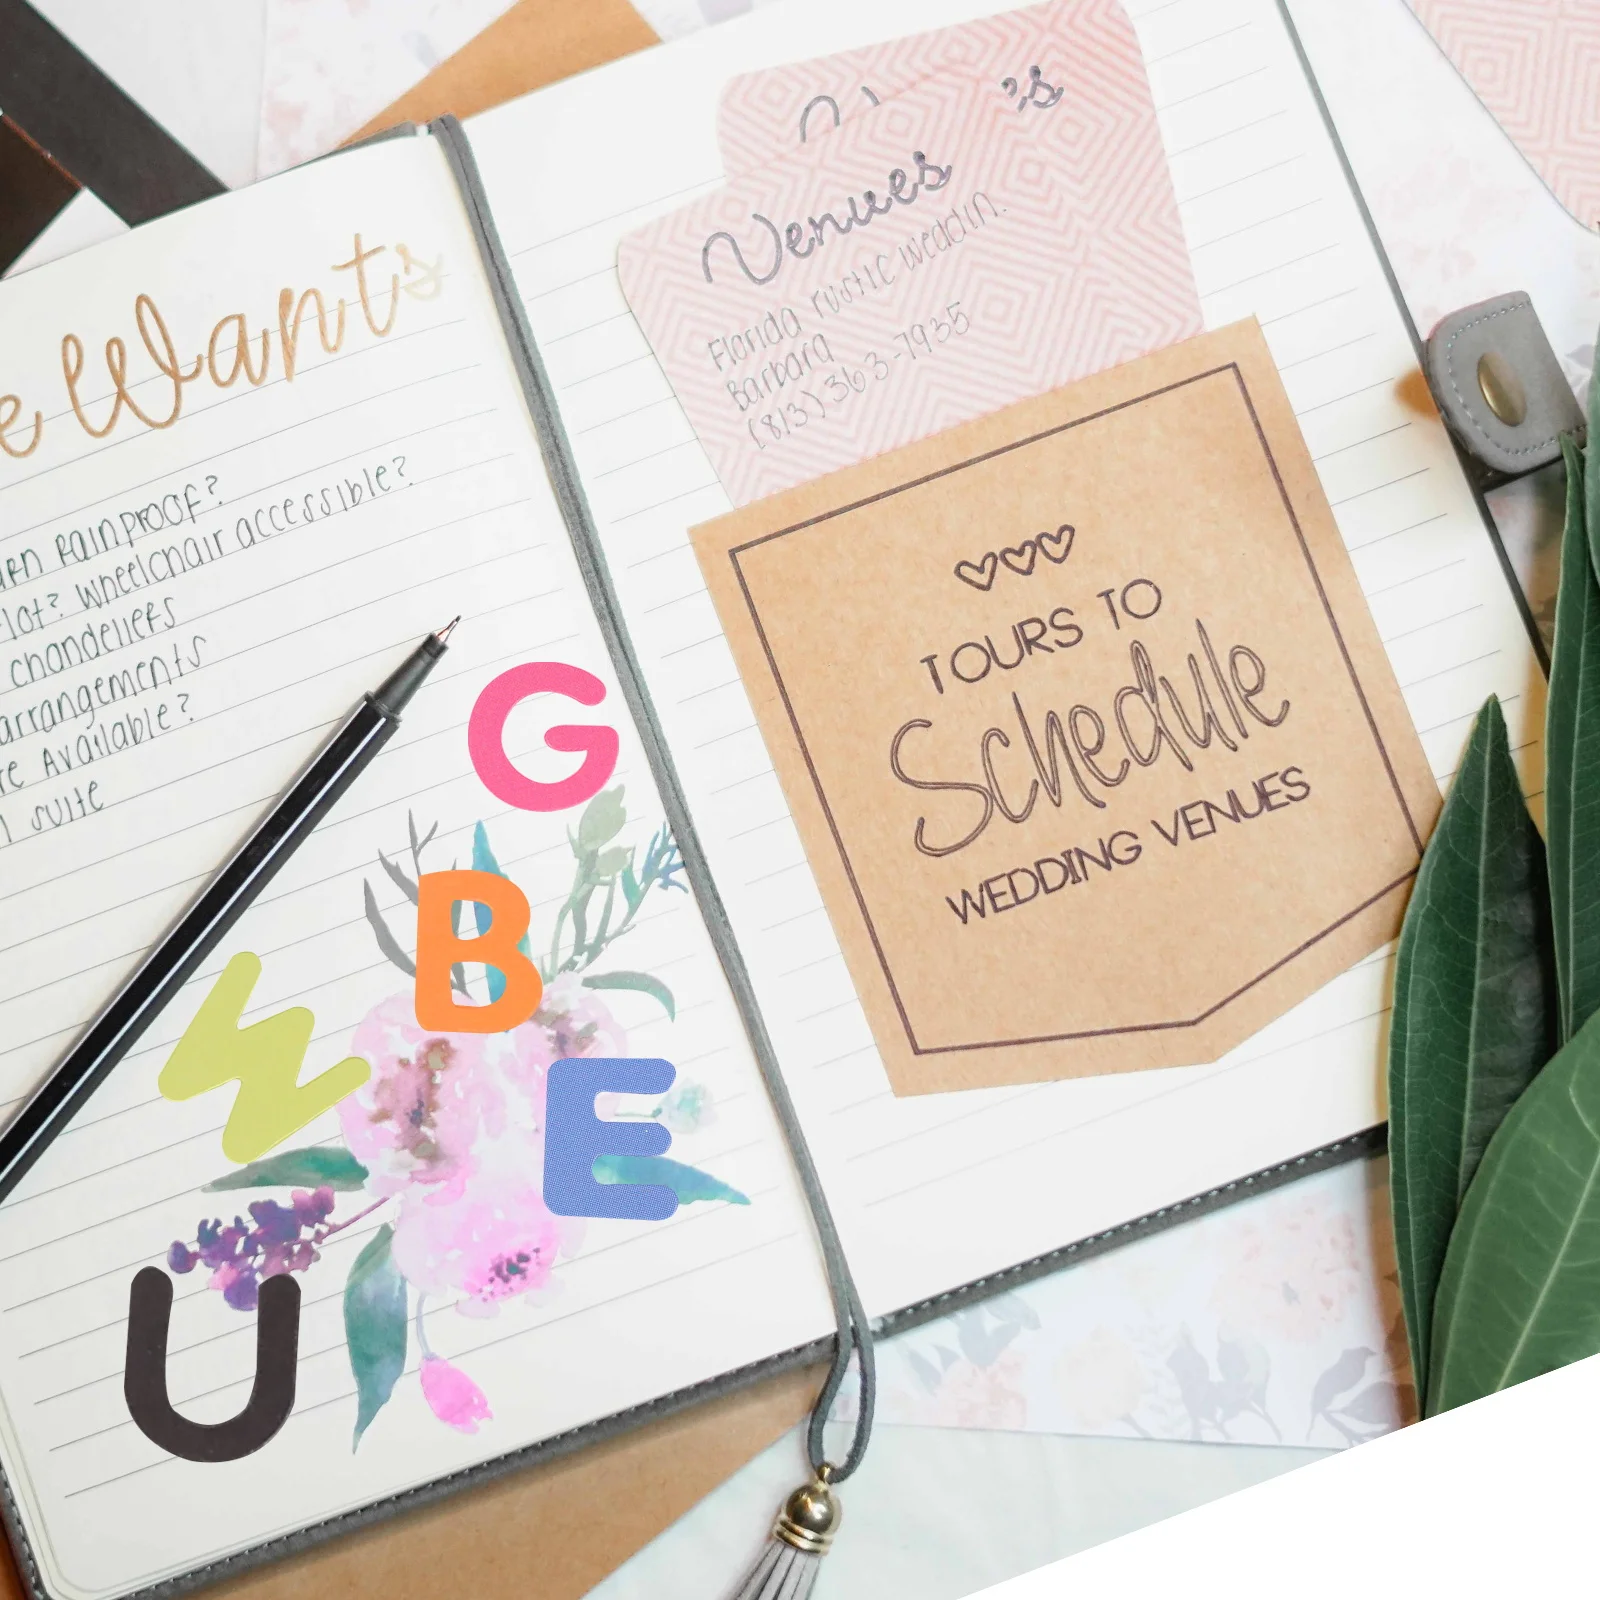 e Wants
rn rainproof?
lot? Wheelchair accessible?
chandeliers
arrangements
re Available?
suite
's
Venues
Florida rustic weddin.
Barbara
(813)363-7935
TOURS TO
Schedule
WEDDING VENUES
G
B
W
E
U